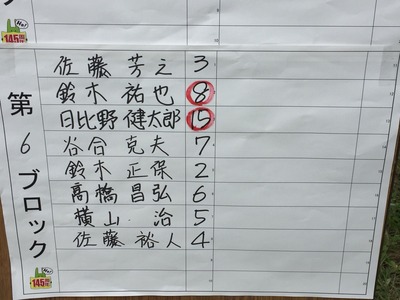 第6ブロック
佐藤 芳之 3
鈴木 祐也 8
日比野 健太郎 15
谷合 克夫 7
鈴木 正保 2
高橋 昌弘 6
横山 治 5
佐藤 裕人 4
145
145